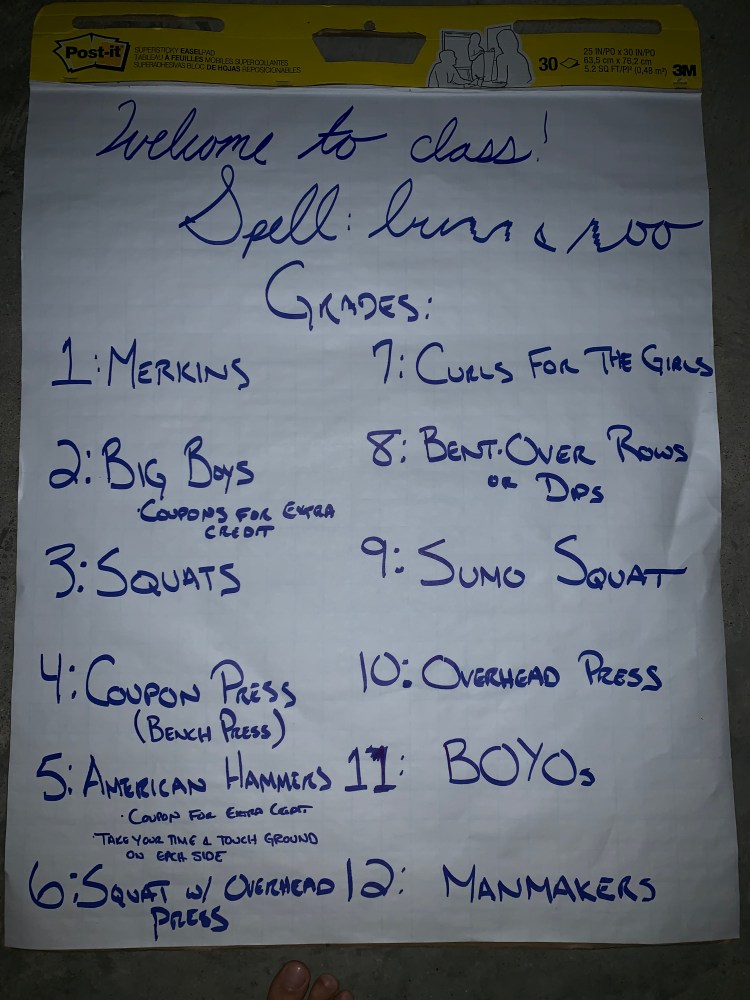 Post-it
SUPERSTICKY EASEL PAD
TABLEAU À FEUILLES MOBILES SUPERCOLLANTES
SUPERADHESIVAS BLOC DE HOJAS REPOSICIONABLES
30
25 IN/PO x 30 IN/PO
63,5 cm x 76,2 cm
5.2 SQ FT/PP (0,48 m²)
3M
Welcome to class!
Spell:
GRADES:
1: MERKINS
2: BIG BOYS
· COUPONS FOR EXTRA
CREDIT
3: SQUATS
4: COUPON PRESS
(BENCH PRESS)
5: AMERICAN HAMMERS
· COUPON FOR EXTRA CREDIT
· TAKE YOUR TIME & TOUCH GROUND
ON EACH SIDE
6: SQUAT W/ OVERHEAD
PRESS
7: CURLS FOR THE GIRLS
8: BENT-OVER ROWS
OR DIPS
9: SUMO SQUAT
10: OVERHEAD PRESS
11: BOYOs
12: MANMAKERS